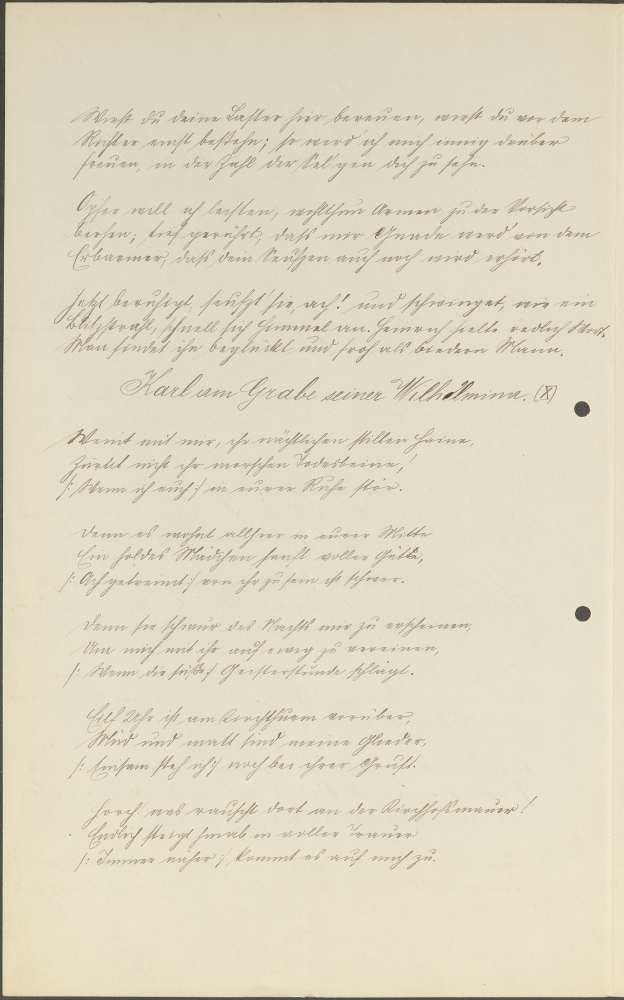 Wirst du deine Laster hier bereuen, wirst du vor dem
Richter einst bestehn; so werd' ich mich innig drüber
freuen, in der Zahl der Sel'gen dich zu sehn.
Opfer will ich leisten, wohlthun Armen zu der Vorsicht
beten; tief gerührt, daß mir Gnade werd' von dem
Erbarmer, daß dein Seufzen auch noch wird erhört.
Jetzt beruhigt, seufzt sie, ach! und schwinget, wie ein
Blitzstrahl, schnell sich Himmel an. Heinrich hielte redlich
Man findet ihn beglückt und froh als biedern Mann.
Karl am Grabe seiner Wilhelmina. (X)
Weint mit mir, ihr nächtlichen stillen Haine,
Zürnet nicht ihr morschen Todesbeine,
/: Wenn ich euch :/ in eurer Ruhe stör.
Denn es wohnt allhier in eurer Mitte
Ein holdes Mädchen sanft voller Güte,
/: Ach getrennt :/ von ihr zu sein ist schwer.
Denn sie schwur des Nachts mir zu erscheinen,
Um mich mit ihr auf ewig zu vereinen,
/: Wenn die süße :/ Geisterstunde schlägt.
Eilf Uhr ist am Kirchthurm vorüber,
Müd und matt sind meine Glieder,
/: Einsam steh ich :/ noch bei ihrer Gruft.
Horch was rauscht dort an der Kirchhofsmauer!
Endlich steigt herab in voller Trauer
/: Immer näher :/, kommt es auf mich zu.